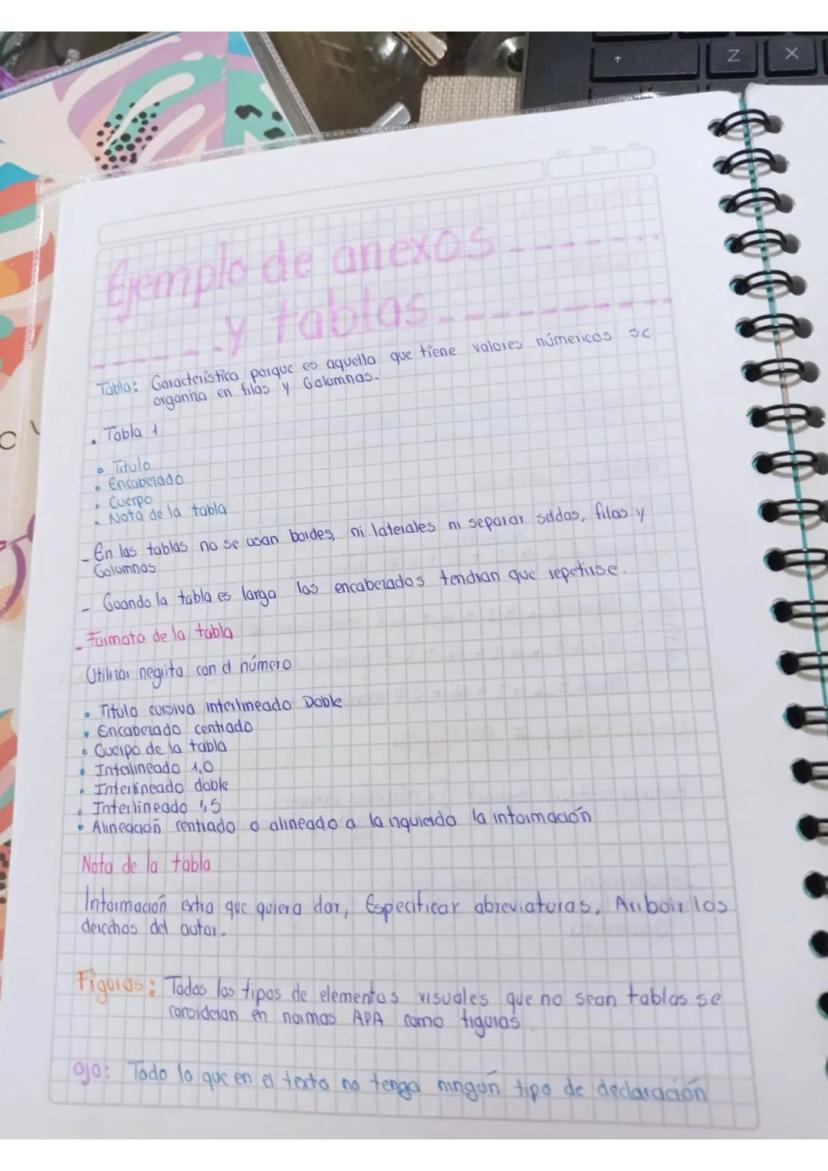 Z X
Ejemplo de anexos
y tablas
Tabla: Caracteristica porque es aquella que tiene valores númericos se
organiza en filas y Columnas.
• Tabla 1
• Titulo
• Encabezado
• Cuerpo
• Nota de la tabla
- En las tablas no se usan bordes, ni laterales ni separar seldas, filas y
Columnas
- Cuando la tabla es larga los encabezados tendrian que repetirse.
- Formato de la tabla
Utilizar negrita con el número
• Titulo cursiva interlineado Doble
• Encabezado centrado
• Cuerpo de la tabla
• Intalineado 1,0
• Interlineado doble
• Interlineado 1,5
• Alineación centrado o alineado a la izquierda la información
Nota de la tabla
Información extra que quiera dar, Especificar abreviaturas, Atribuir los
derechos del autor.
Figuras: Todas los tipos de elementos visuales que no sean tablas se
consideran en normas APA como figuras.
Ojo: Todo lo que en el texto no tenga ningún tipo de declaración